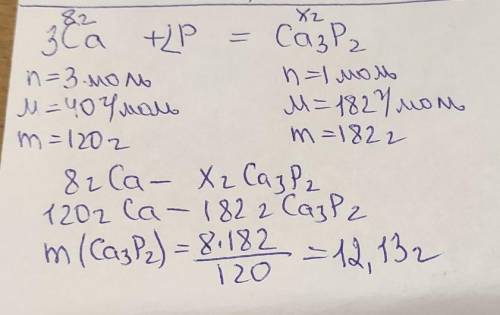 8г xг
3Ca + 2P = Ca₃P₂
n=3 моль n=1 моль
M=40 г/моль M=182 г/моль
m=120г m=182г
8г Ca — xг Ca₃P₂
120г Ca — 182г Ca₃P₂
m(Ca₃P₂) = 8·182/120 = 12,13г